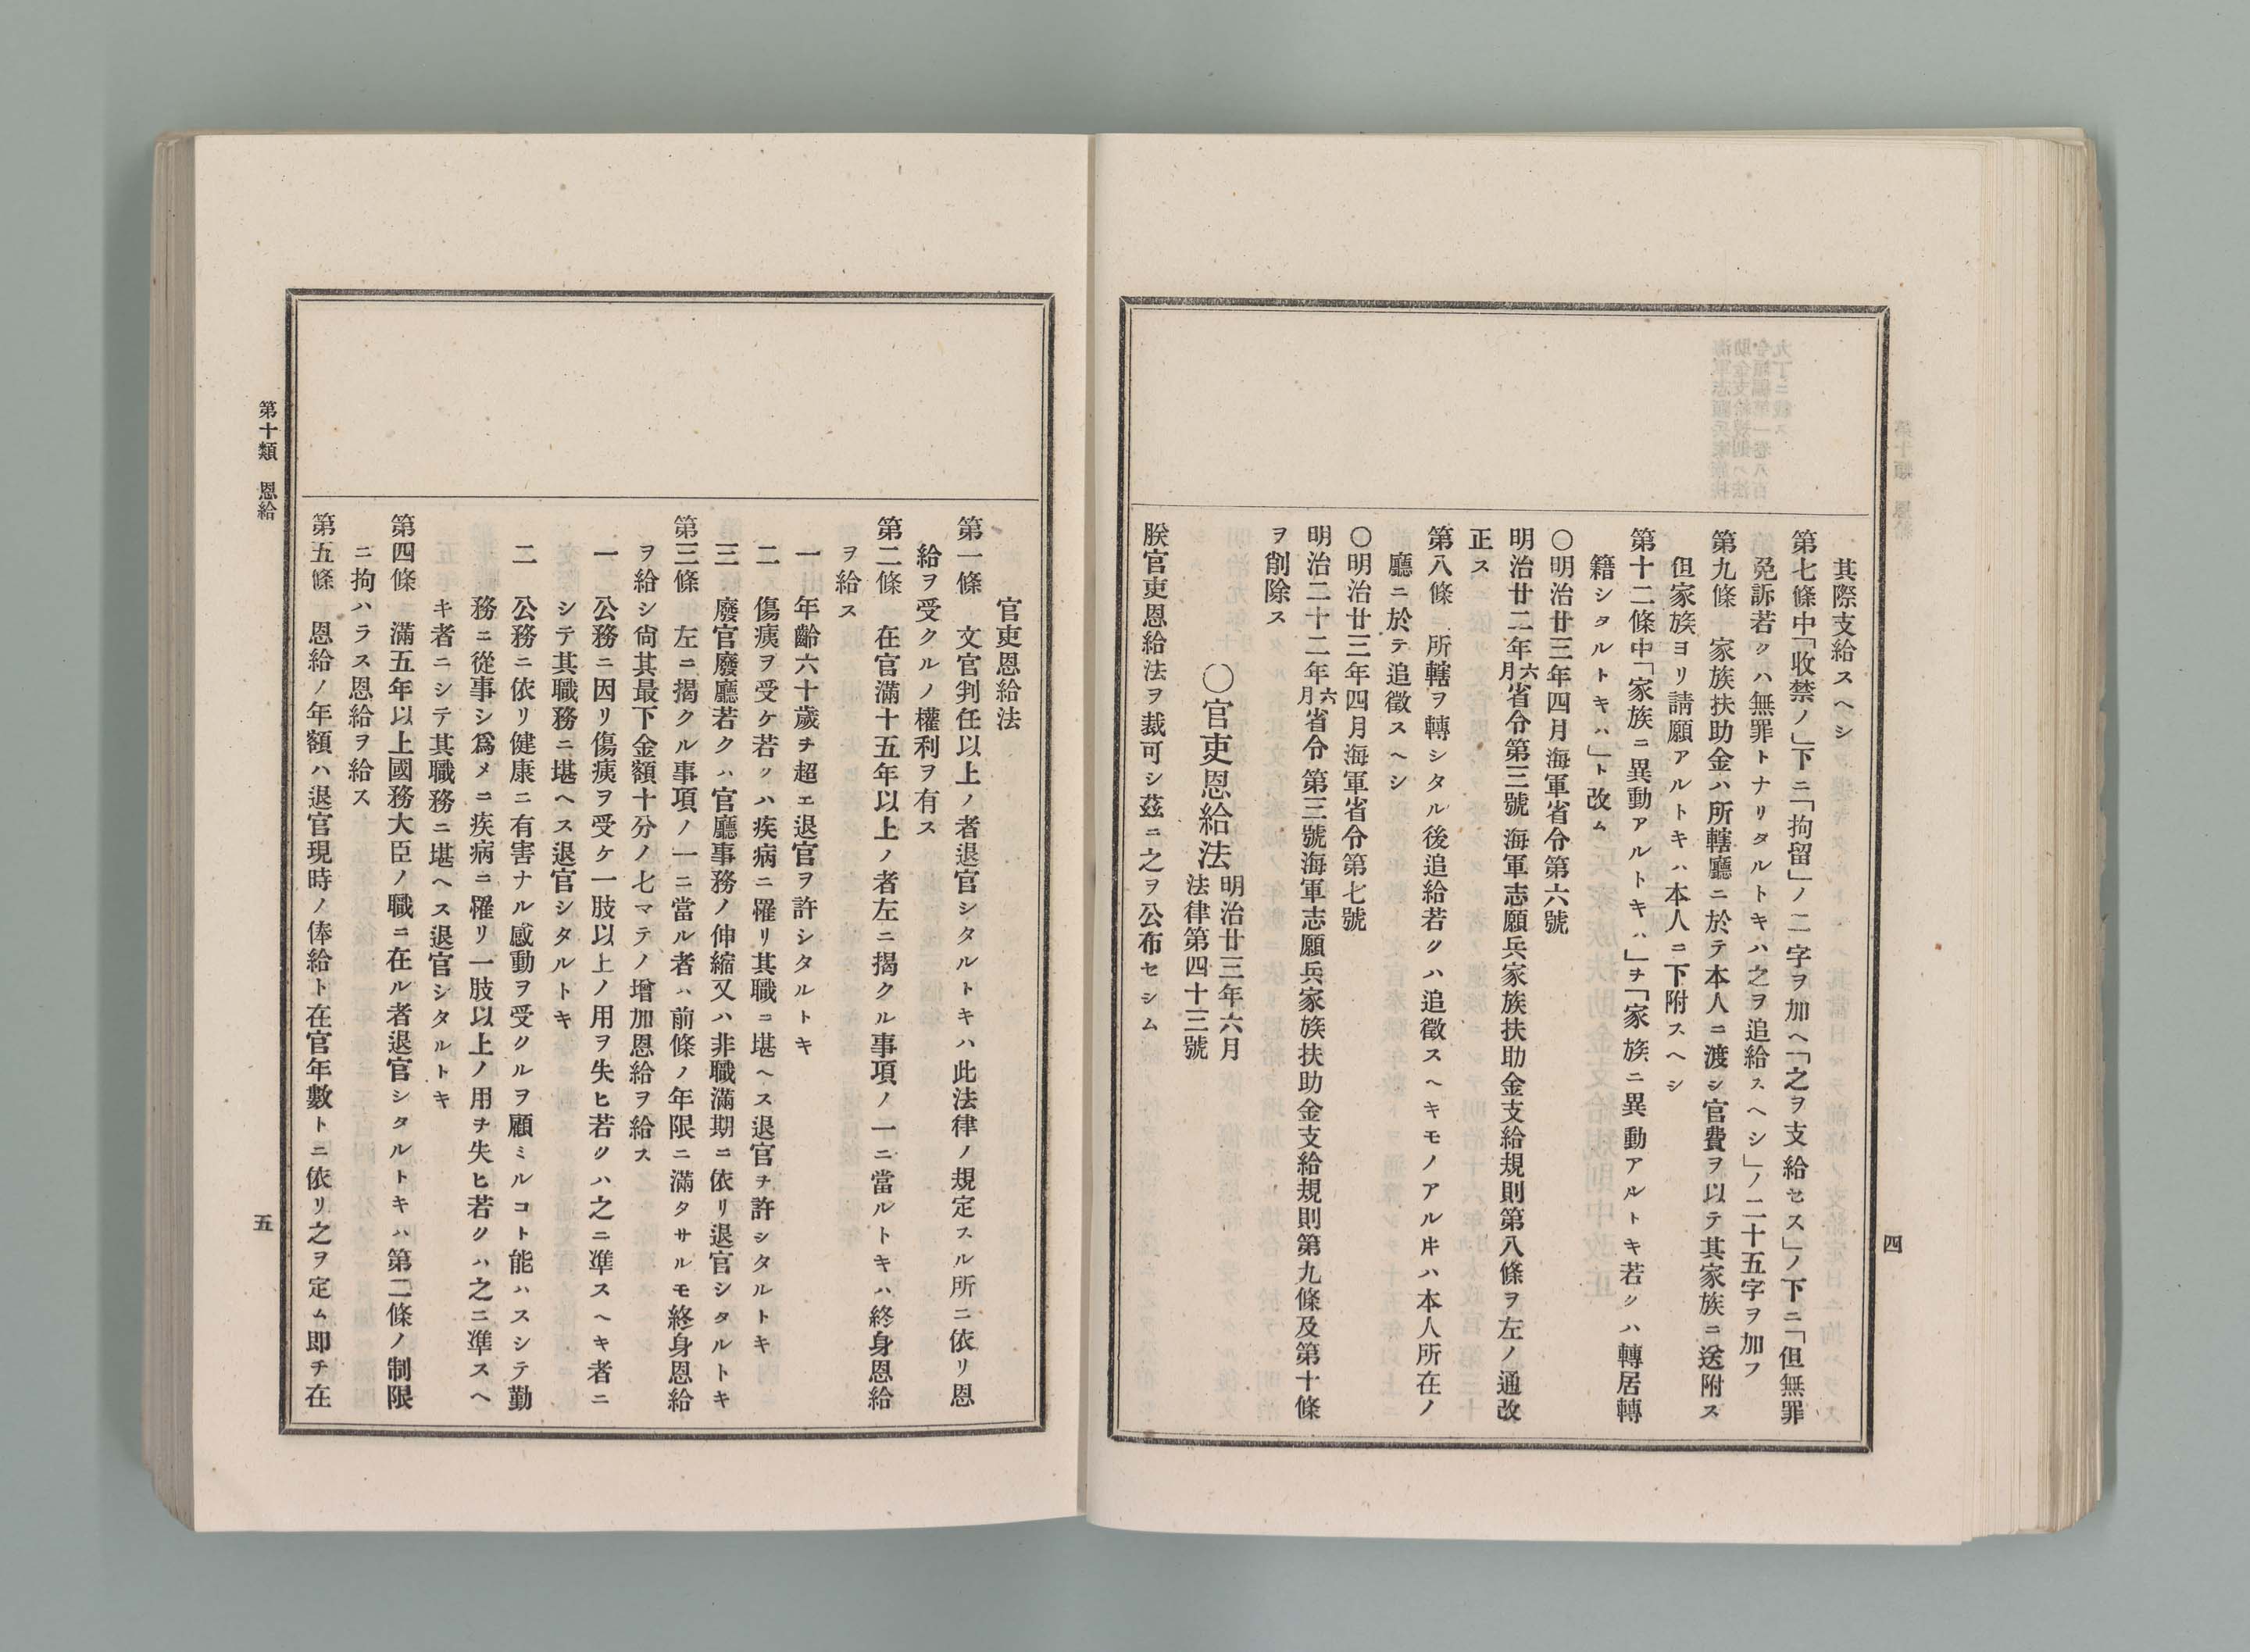 其際支給スヘシ
第七條中「收禁ノ」下ニ「拘留」ノ二字ヲ加ヘ「之ヲ支給セス」ノ下ニ「但無罪
免訴若クハ無罪トナリタルトキハ之ヲ追給スヘシ」ノ二十五字ヲ加フ
第九條　家族扶助金ハ所轄廳ニ於テ本人ニ渡シ官費ヲ以テ其家族ニ送附ス
但家族ヨリ請願アルトキハ本人ニ下附スヘシ
第十二條中「家族ニ異動アルトキハ」ヲ「家族ニ異動アルトキ若クハ轉居轉
籍シタルトキハ」ト改ム
〇明治廿三年四月海軍省令第六號
明治廿二年六月省令第三號海軍志願兵家族扶助金支給規則第八條ヲ左ノ通改
正ス
第八條　所轄ヲ轉シタル後追給若クハ追徵スヘキモノアル𪜈ハ本人所在ノ
廳ニ於テ追徵スヘシ
〇明治廿三年四月海軍省令第七號
明治二十二年六月省令第三號海軍志願兵家族扶助金支給規則第九條及第十條
ヲ削除ス
〇官吏恩給法
明治廿三年六月
法律第四十三號
朕官吏恩給法ヲ裁可シ茲ニ之ヲ公布セシム
四
官吏恩給法
第一條　文官判任以上ノ者退官シタルトキハ此法律ノ規定スル所ニ依リ恩
給ヲ受クルノ權利ヲ有ス
第二條　在官滿十五年以上ノ者左ニ揭クル事項ノ一ニ當ルトキハ終身恩給
ヲ給ス
一　年齡六十歲ヲ超エ退官ヲ許シタルトキ
二　傷痍ヲ受ケ若クハ疾病ニ罹リ其職ニ堪ヘス退官ヲ許シタルトキ
三　廢官廢廳若クハ官廳事務ノ伸縮又ハ非職滿期ニ依リ退官シタルトキ
第三條　左ニ揭クル事項ノ一ニ當ル者ハ前條ノ年限ニ滿タサルモ終身恩給
ヲ給シ尙其最下金額十分ノ七マテノ增加恩給ヲ給ス
一　公務ニ因リ傷痍ヲ受ケ一肢以上ノ用ヲ失ヒ若クハ之ニ準スヘキ者ニ
シテ其職務ニ堪ヘス退官シタルトキ
二　公務ニ依リ健康ニ有害ナル感動ヲ受クルヲ顧ミルコト能ハスシテ勤
務ニ從事シ爲メニ疾病ニ罹リ一肢以上ノ用ヲ失ヒ若クハ之ニ準スヘ
キ者ニシテ其職務ニ堪ヘス退官シタルトキ
第四條　滿五年以上國務大臣ノ職ニ在ル者退官シタルトキハ第二條ノ制限
ニ拘ハラス恩給ヲ給ス
第五條　恩給ノ年額ハ退官現時ノ俸給ト在官年數トニ依リ之ヲ定ム卽チ在
第十類　恩給
五